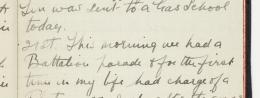 was sent to a Gas School
today.
21st. This morning we had a
Battalion parade & for the first
time in my life had charge of a